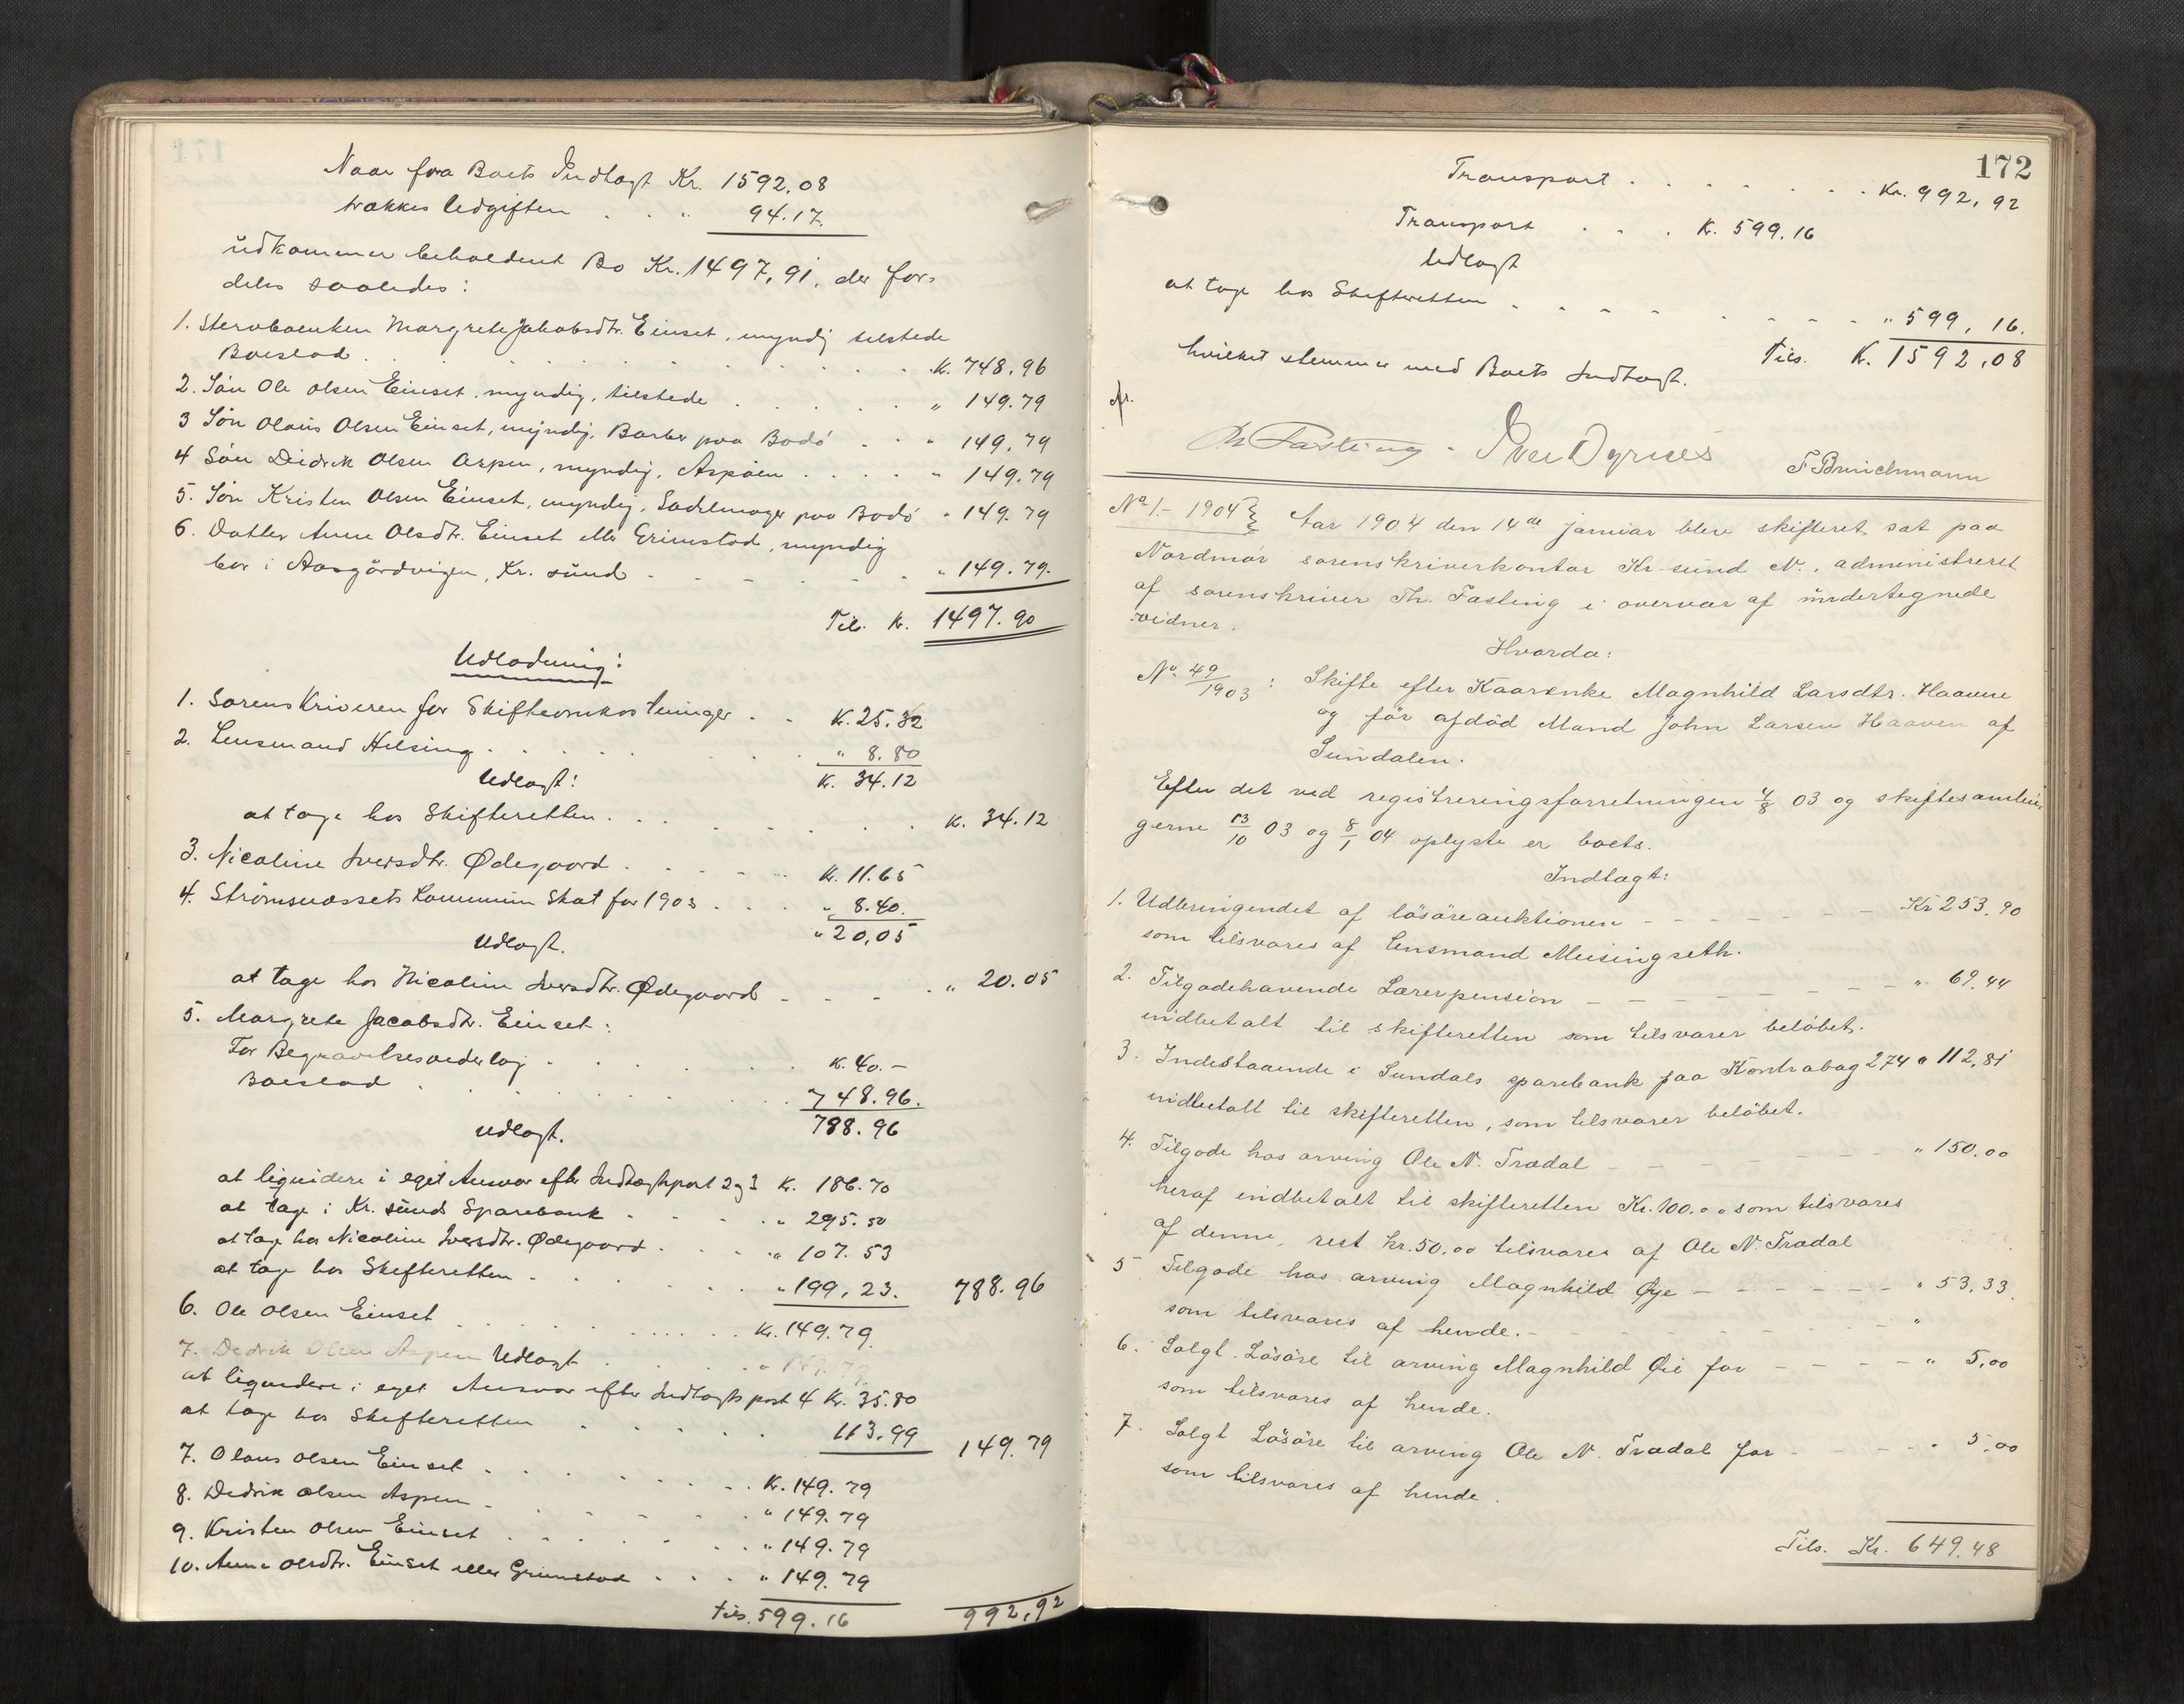 Naar fra Boets Indtægt Kr. 1592,08
trækkes Udgiften . . " 94.17.
udkommer beholdent Bo Kr. 1497,91, der for-
deles saaledes:
1. Margrete Jakobsdtr. Einset, myndig tilstede
Boeslod . . . Kr. 748.96
2. Søn Ole Olsen Einset, myndig, tilstede . . . " 149.79
3 Søn Olaus Olsen Einset, myndig, Barber paa Bodö . . " 149,79
4 Søn Diedrik Olsen Aspen, myndig, Aspöen . . . . " 149.79
5. Søn Kristen Olsen Einset, myndig, Sadelmager paa Bodö " 149.79
6. Datter Anne Olsdtr. Einset eller Grimstad, myndig
bor i Aasgårdvigen, Kr. sund - - - - " 149.79.
Til. Kr. 1497.90
Udlodning:
1. Sorenskriveren for Skifteomkostninger . . Kr. 25.32
2. Lensmand Helsing . . . " 8.80
Udlagt: Kr. 34.12
at tage hos Skifteretten . . . Kr. 34.12
3. Nicoline Iversdtr. Ødegaard . . . Kr. 11.65
4. Strømsnæssets Kommune Skat for 1903 . . . " 8.40.
Udlagt. " 20,05
at tage hos Nicoline Iversdtr. Ødegaard - - - " 20.05
5. Margrete Jacobsdtr. Einset:
For Begravelsesvederlag . . . Kr. 40.-
Boeslod . . . 748.96.
Udlagt. 788.96
at liquidere i eget Ansvar efter Indtægtspost 2 og 3 Kr. 186.70
at tage i Kr. sunds Sparebank . . . " 295.50
at tage hos Nicoline Iversdtr. Ødegaard . . . " 107.53
at tage hos Skifteretten . . . " 199,23. 788.96
6. Ole Olsen Einset . . . Kr. 149.79.
7. Dedrik Olsen Aspen Udlagt . . . " 149.79
at liquidere i eget Ansvar efter Indtægts post 4 Kr. 35.80
at tage hos Skifteretten . . . 113.99 149.79
7. Olaus Olsen Einset . . . Kr. 149.79
8. Dedrik Olsen Aspen . . . " 149.79
9. Kristen Olsen Einset . . . " 149.79
10. Anne Olsdtr. Einset eller Grimstad . . . " 149.79
tils. 599.16 992,92
172
Transport . . . . . . . Kr. 992,92
Transport . . . Kr. 599.16
Udlagt
at tage hos Skifteretten . . . " 599,16.
Tils. Kr. 1592,08
hvilket stemmer med Boets Indtægt.
Th Fasting - Iver Dyrnes F Brüichmann
No 1.- 1904 Aar 1904 den 14de januar blev skifteret sat paa
Nordmør sorenskriverkontor Kr sund N., administreret
af sorenskriver Th. Fasting i overvær af undertegnede
vidner.
Hvorda:
No. 49/1903: Skifte efter Kaarenke Magnhild Larsdtr. Haaven
og før afdöd Mand John Larsen Haaven af
Sundalen.
Efter det ved registreringsforretningen 4/8 03 og skiftesamlin-
gerne 13/10 03 og 8/1 04 oplyste er boets.
Indtægt:
1. Udbringendet af lösöreauktionen - - - - - - - Kr 253,90
som tilsvares af lensmand Meisingseth.
2. Tilgodehavende Lærerpension - - - - - - - " 69,44
indbetalt til skifteretten som tilsvarer belöbet.
3. Indestaaende i Sundals sparebank paa Kontrabog 274 " 112,81
indbetalt til skifteretten, som tilsvarer belöbet.
4. Tilgode hos arving Ole N. Trædal - - - - - - " 150.00
heraf indbetalt til skifteretten Kr. 100.00 som tilsvares
af denne, rest kr. 50,00 tilsvares af Ole N. Trædal
5 Tilgode hos arving Magnhild Øye - - - - - - " 53,33.
som tilsvares af hende. - - - - - "
6. Solgt Lösöre til arving Magnhild Øie for - - - - " 5,00
som tilsvares af hende.
7. Solgt Lösöre til arving Ole N. Trædal for - - - - " 5,00
som tilsvares af hende.
Tils. Kr. 649,48